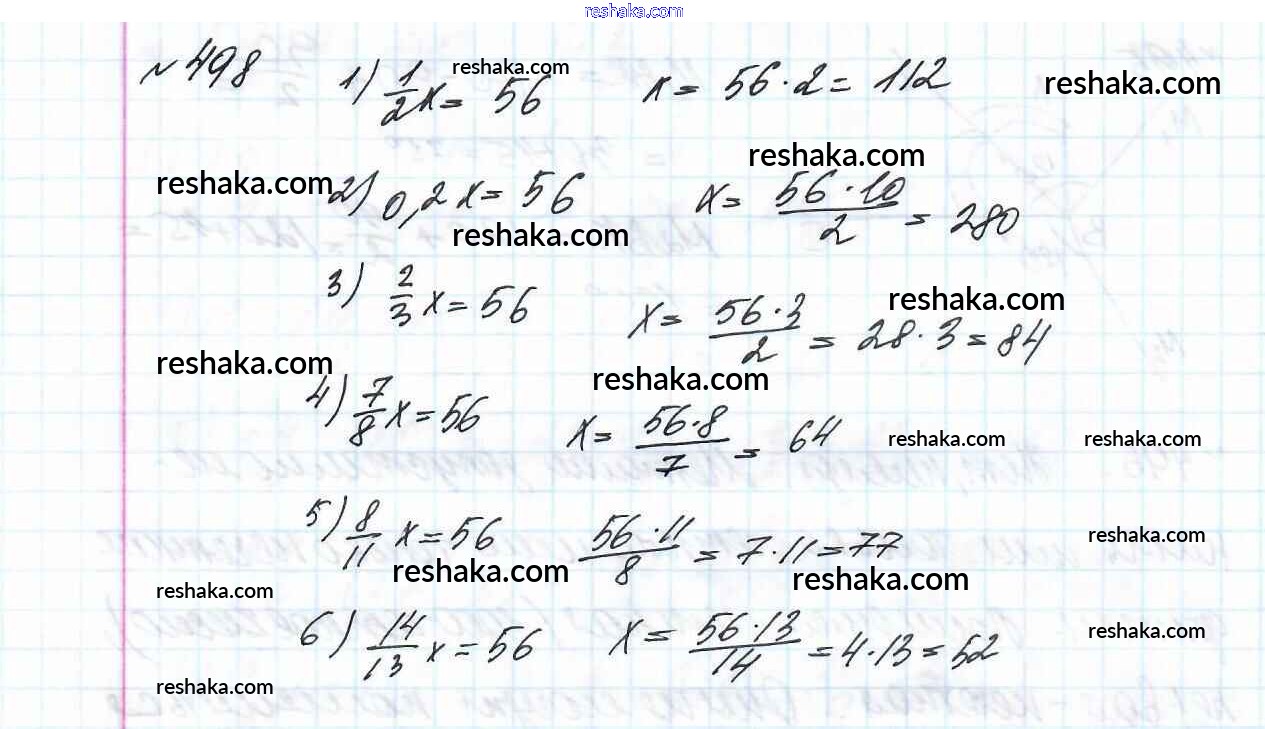 reshaka.com
№ 498 1) 1/2 x = 56 x = 56 · 2 = 112
reshaka.com reshaka.com
reshaka.com
reshaka.com
2) 0,2 x = 56 x = 56 · 10 / 2 = 280
reshaka.com
3) 2/3 x = 56 x = 56 · 3 / 2 = 28 · 3 = 84
reshaka.com
reshaka.com
reshaka.com
4) 7/8 x = 56 x = 56 · 8 / 7 = 64
reshaka.com reshaka.com
5) 8/11 x = 56 56 · 11 / 8 = 7 · 11 = 77
reshaka.com
reshaka.com reshaka.com
reshaka.com
6) 14/13 x = 56 x = 56 · 13 / 14 = 4 · 13 = 52
reshaka.com
reshaka.com